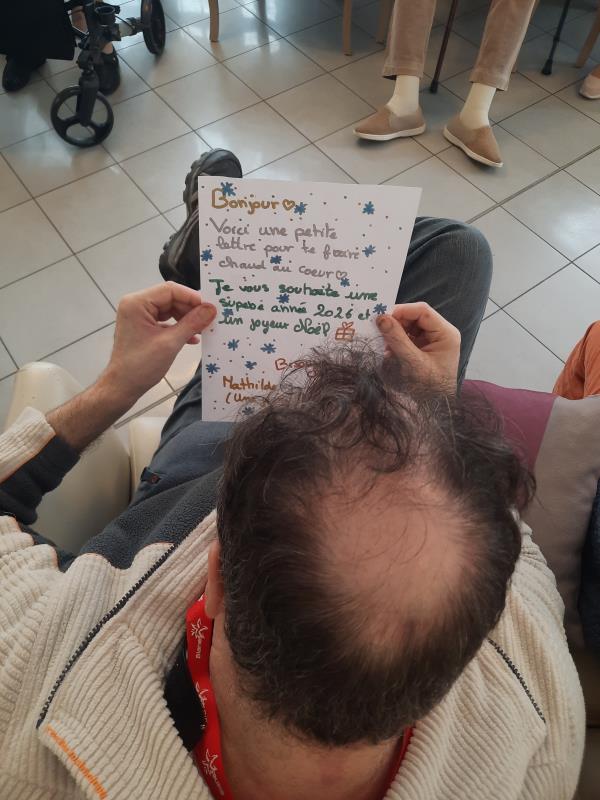 Bonjour
Voici une petite
lettre pour te faire
chaud au coeur
Je vous souhaite une
superbe année 2026 et
un joyeux Noël
Mathilde